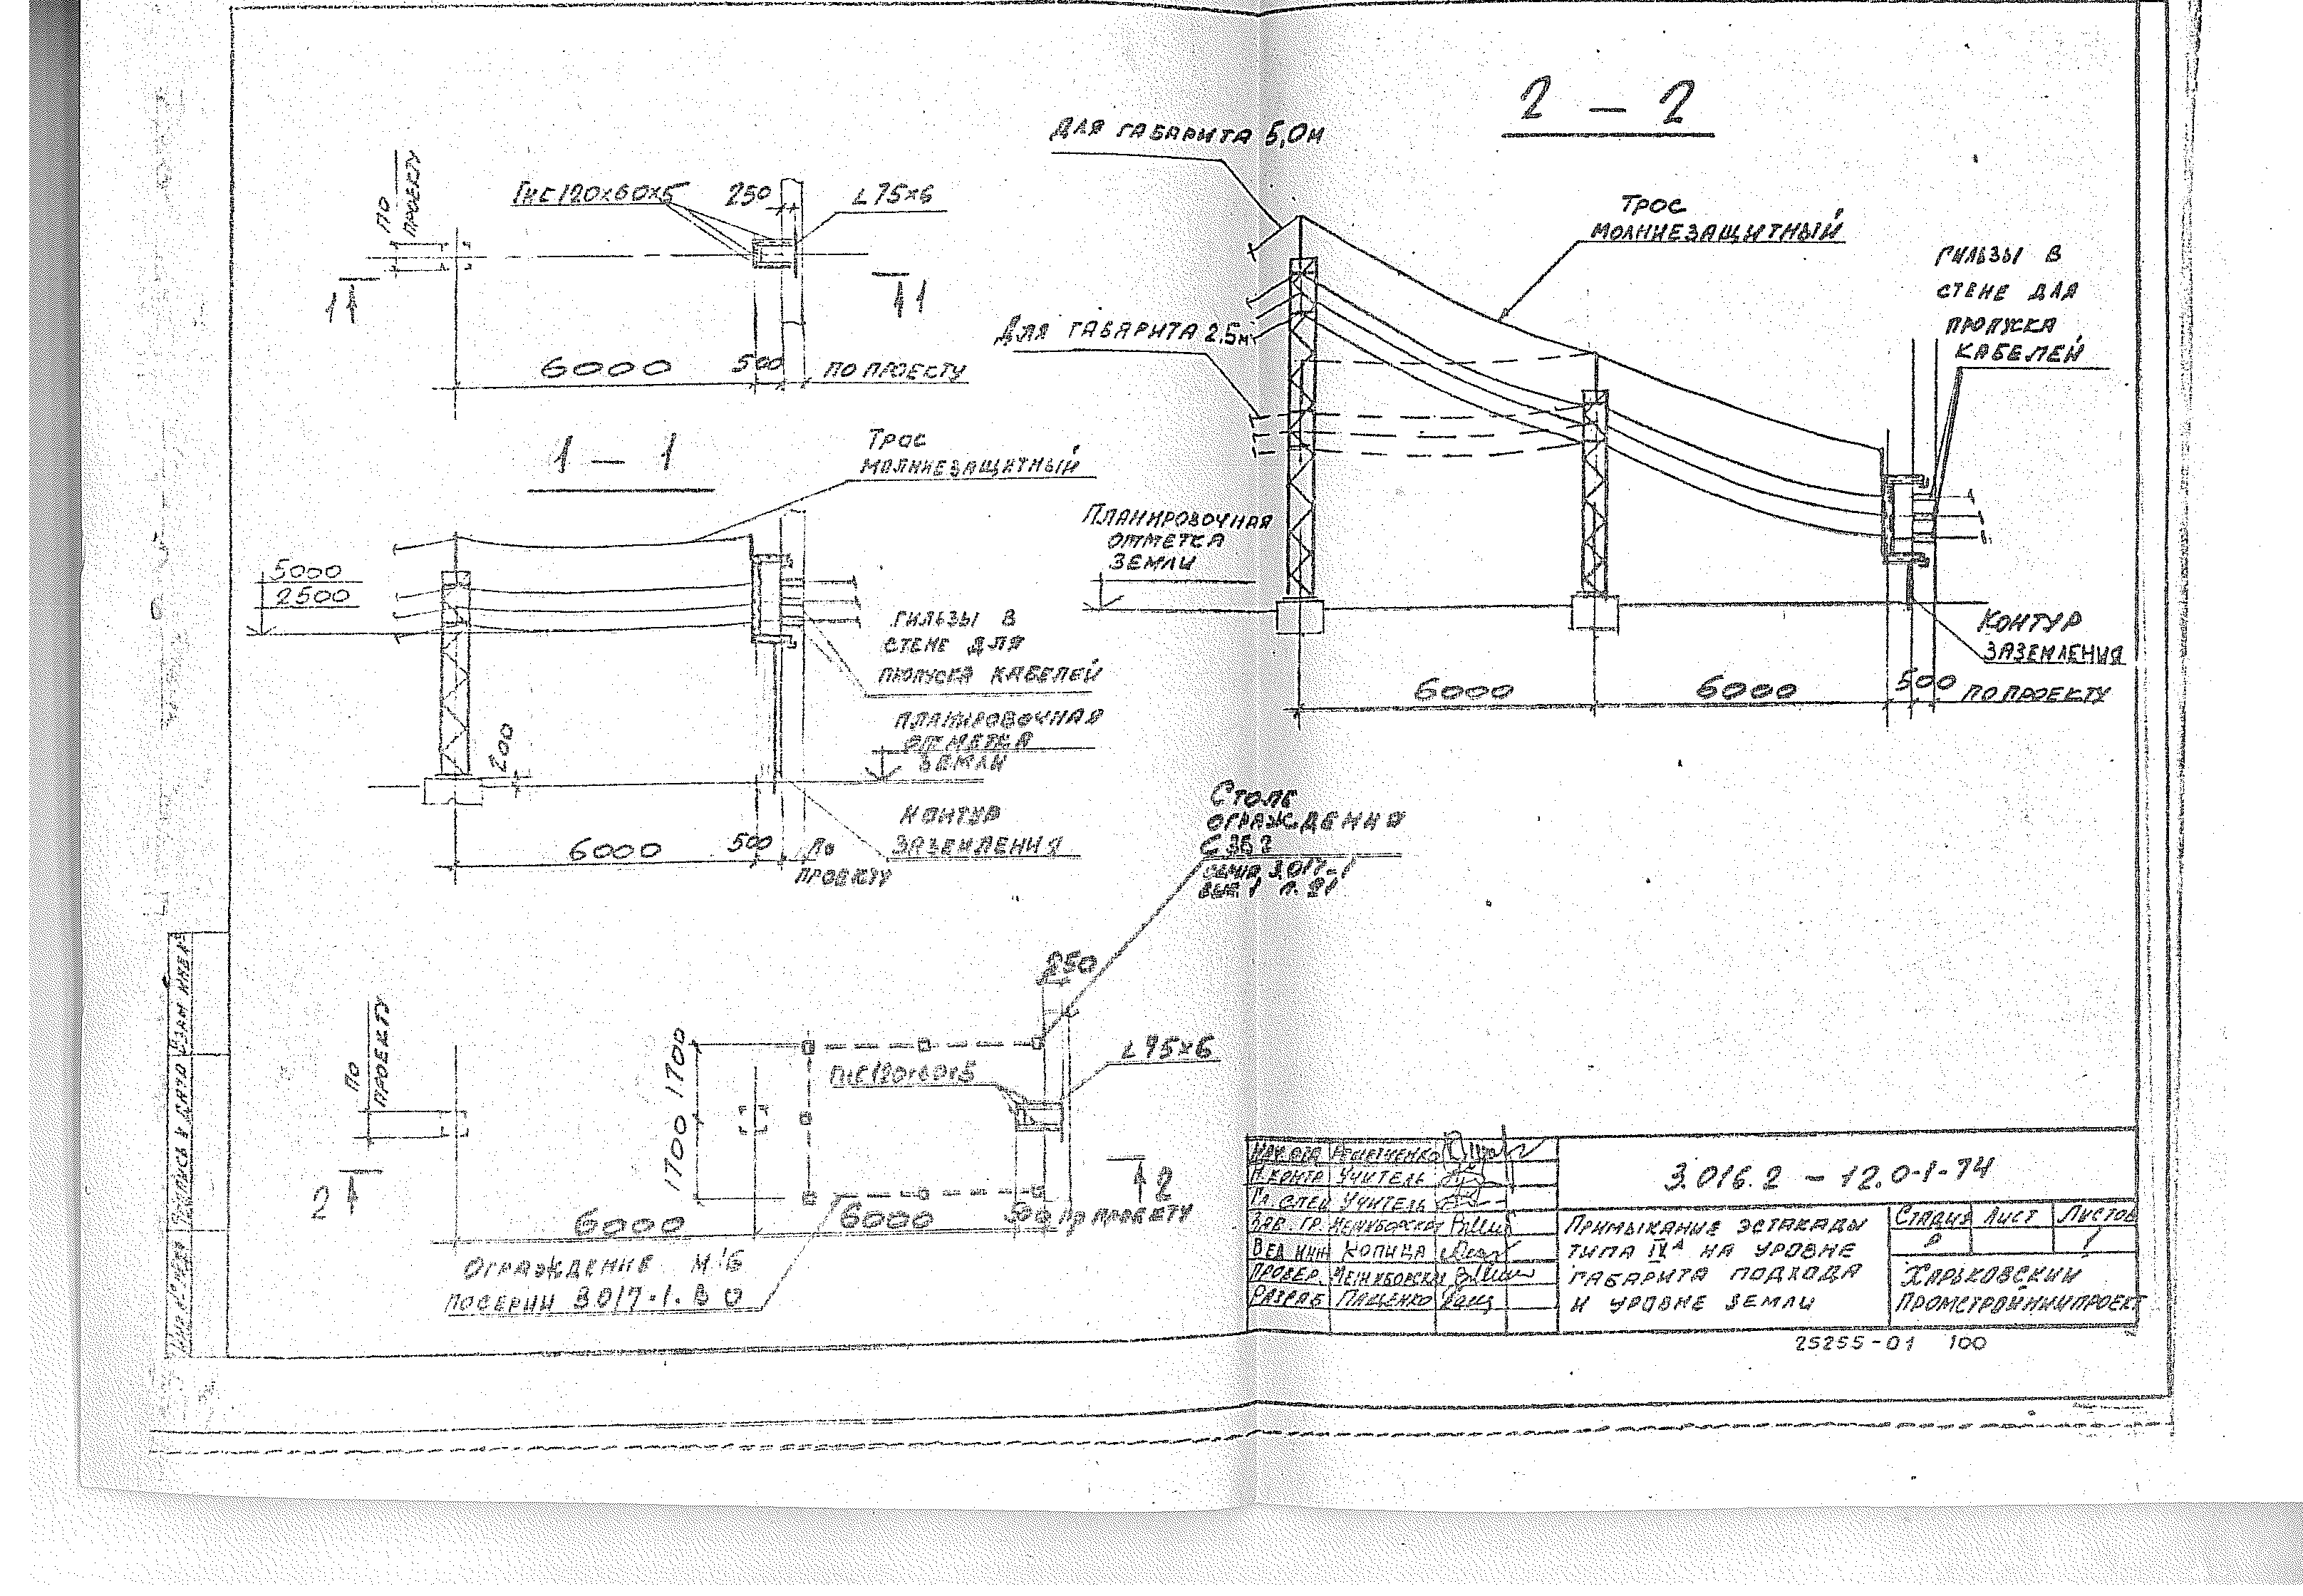 2 – 2
Для габарита 5,0м
Трос
молниезащитный
Гильзы в
стене для
пропуска
кабелей
Для габарита 2,5м
Планировочная
отметка
земли
Контур
заземления
6000
6000
500
по проекту
по
проекту
Гнс 120×60×5
250
∟75×6
1
1
6000
500
по проекту
1 – 1
Трос
молниезащитный
5000
2500
Гильзы в
стене для
пропуска кабелей
Планировочная
отметка
земли
200
Контур
заземления
6000
500
по
проекту
Столб
ограждения
серия 3.017-1
вып. 1
250
по
проекту
1700 1700
Гнс 120×60×5
∟75×6
2
2
6000
6000
500
по проекту
Ограждение М1Б
по серии 3017-1. В 0
Взам инв
Подпись и дата
Нач отд
Н.контр Учитель
Гл спец Учитель
Зав. гр.
Вед инж Копица
Провер.
Разраб Пащенко
3.016.2 – 12.0-1-74
Примыкание эстакады
типа IVА на уровне
габарита подхода
и уровне земли
Стадия Лист Листов
Р 1
Харьковский
Промстройниипроект
25255-01 100